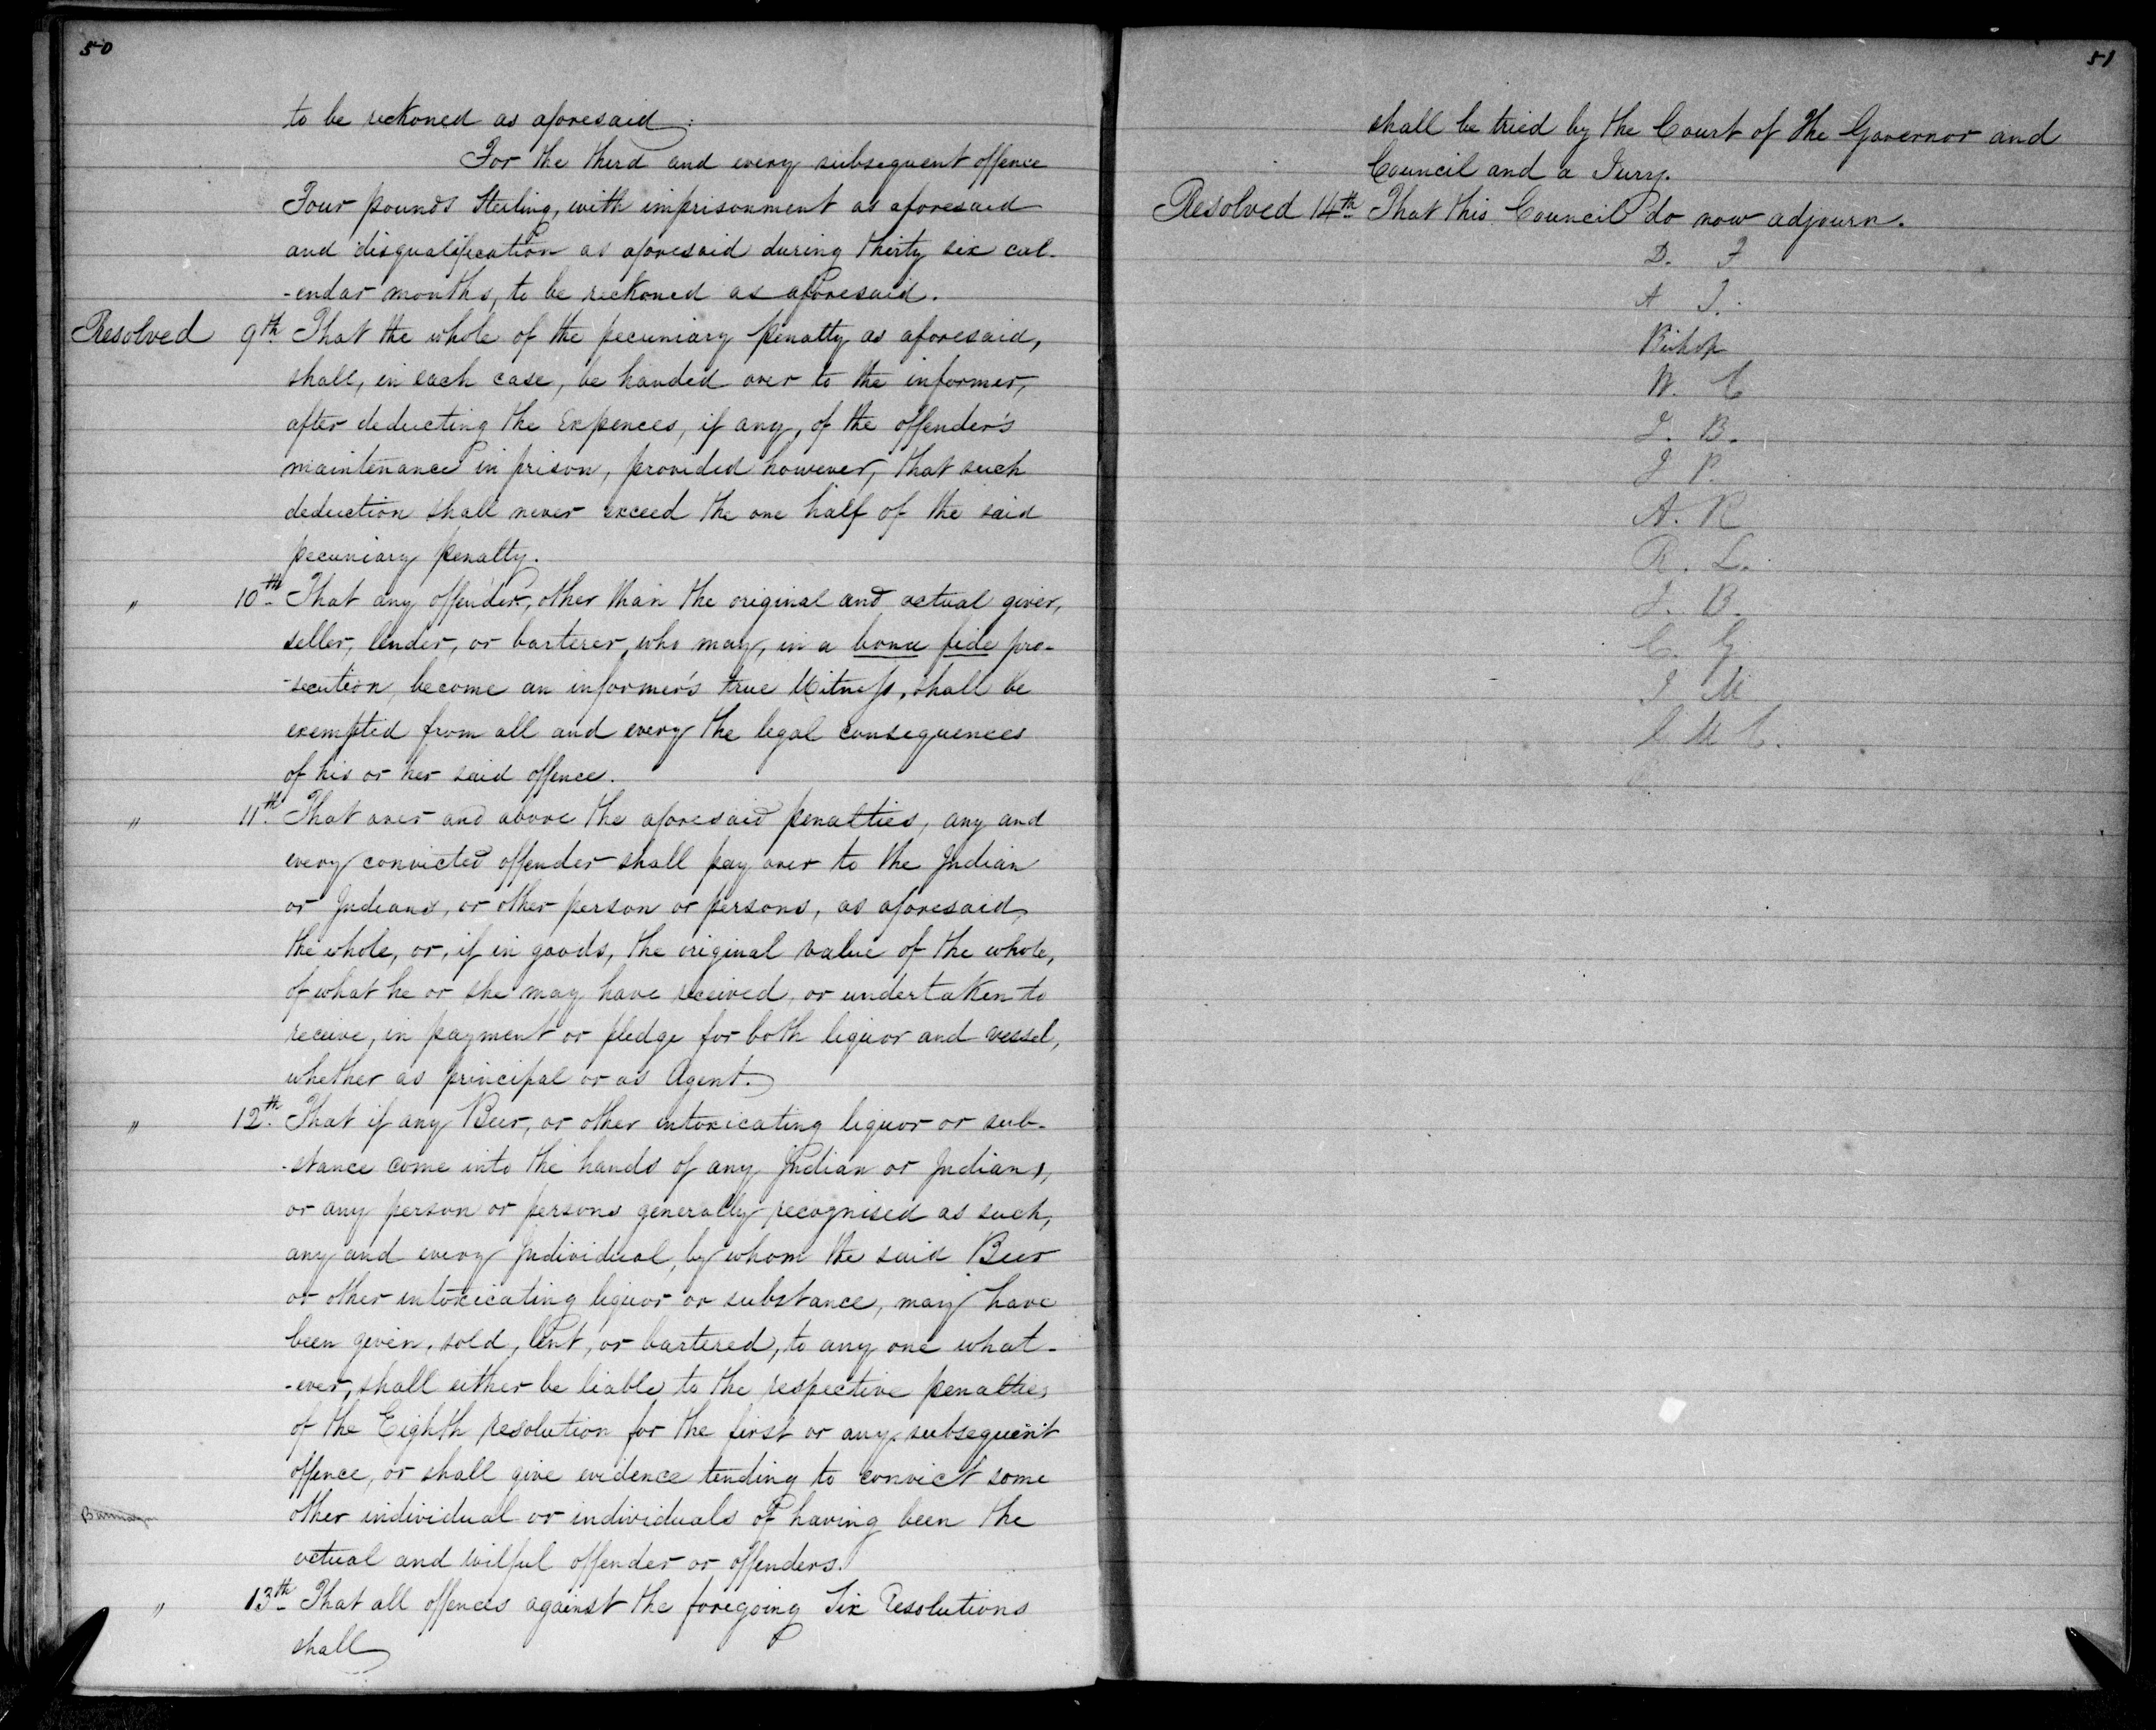 50
to be reckoned as aforesaid:
For the third and every subsequent offence
Four pounds Sterling, with imprisonment as aforesaid
and disqualification as aforesaid during thirty six cal-
-endar months, to be reckoned as aforesaid.
Resolved 9th That the whole of the pecuniary penalty as aforesaid,
shall, in each case, be handed over to the informer,
after deducting the Expences, if any, of the offender's
maintenance in prison, provided however, that such
deduction shall never exceed the one half of the said
pecuniary penalty.
" 10th That any offender, other than the original and actual giver,
seller, lender, or barterer, who may, in a bona fide pro-
-secution, become an informer's true Witness, shall be
exempted from all and every the legal consequences
of his or her said offence.
" 11th That over and above the aforesaid penalties, any and
every convicted offender shall pay over to the Indian
or Indians, or other person or persons, as aforesaid,
the whole, or, if in goods, the original value of the whole,
of what he or she may have received, or undertaken to
receive, in payment or pledge for both liquor and vessel,
whether as principal or as Agent.
" 12th That if any Beer, or other intoxicating liquor or sub-
-stance come into the hands of any Indian or Indians,
or any person or persons generally recognised as such,
any and every Individual, by whom the said Beer
or other intoxicating liquor or substance, may have
been given, sold, lent, or bartered, to any one what-
-ever, shall either be liable to the respective penalties
of the Eighth resolution for the first or any subsequent
offence, or shall give evidence tending to convict some
other individual or individuals of having been the
actual and wilful offender or offenders.
" 13th That all offences against the foregoing Six Resolutions
shall
51
shall be tried by the Court of the Governor and
Council and a Jury.
Resolved 14th That this Council do now adjourn.
D. F
A T.
Bishop
W. C
J. B.
J P.
A. R
R. L.
J. B.
C. G
J M
C M C.